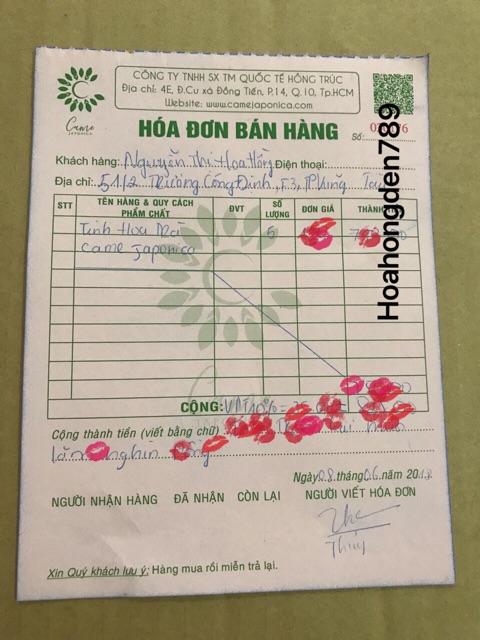 CÔNG TY TNHH SX TM QUỐC TẾ HỒNG TRÚC
Địa chỉ: 4E, Đ.Cư xá Đồng Tiến, P.14, Q.10, Tp.HCM
Website: www.camejaponica.com
Came
JAPONICA
HÓA ĐƠN BÁN HÀNG
Số:
Khách hàng: Nguyễn Thị Hoa Hồng Điện thoại:
Địa chỉ: 51/2 Trương Công Định, F3, TP Vũng Tàu
STT TÊN HÀNG & QUY CÁCH PHẨM CHẤT ĐVT SỐ LƯỢNG ĐƠN GIÁ THÀNH
Tinh Hoa 5
Came Japonica
CỘNG: VAT 10% =
Cộng thành tiền (viết bằng chữ)
nghìn
Ngày 08 tháng 06 năm 2018
NGƯỜI NHẬN HÀNG ĐÃ NHẬN CÒN LẠI NGƯỜI VIẾT HÓA ĐƠN
Thúy
Xin Quý khách lưu ý: Hàng mua rồi miễn trả lại.
Hoahongden789